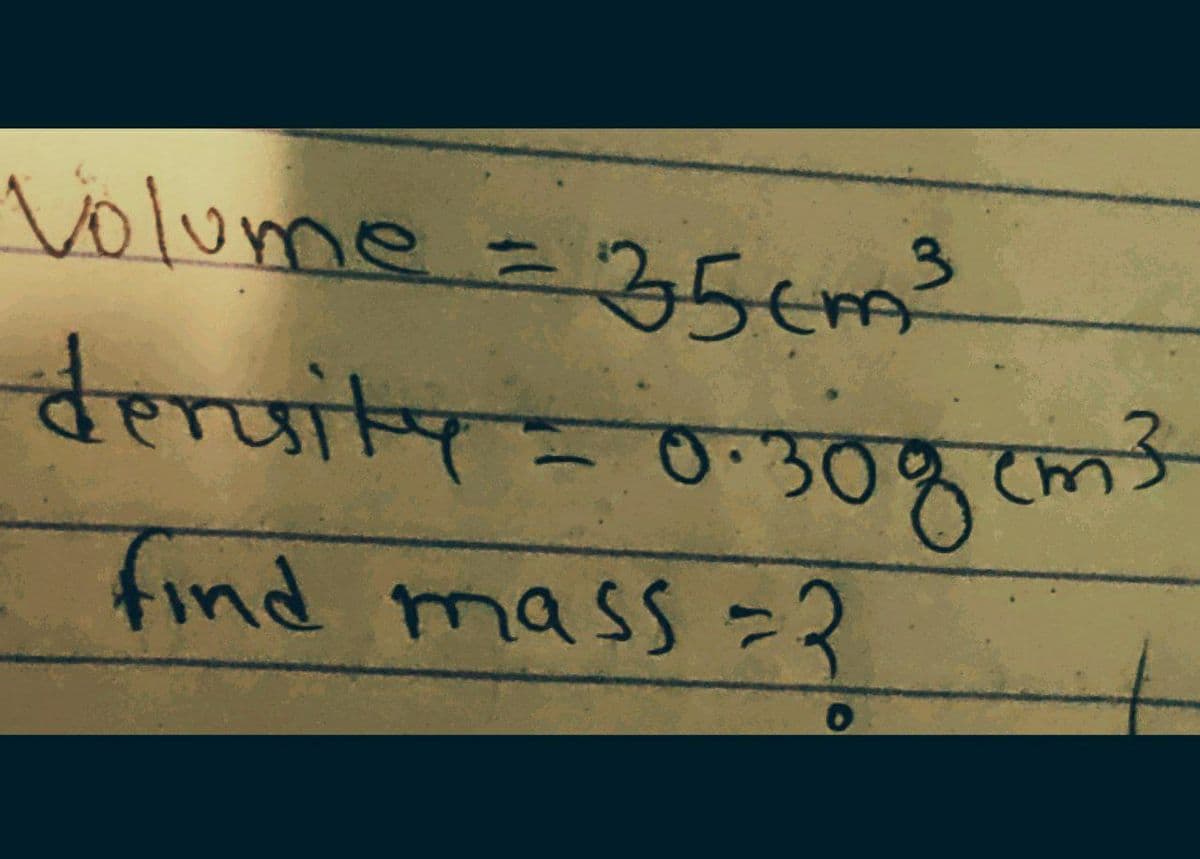 Volume = 35cm³
density = 0.30g cm³
find mass = ?